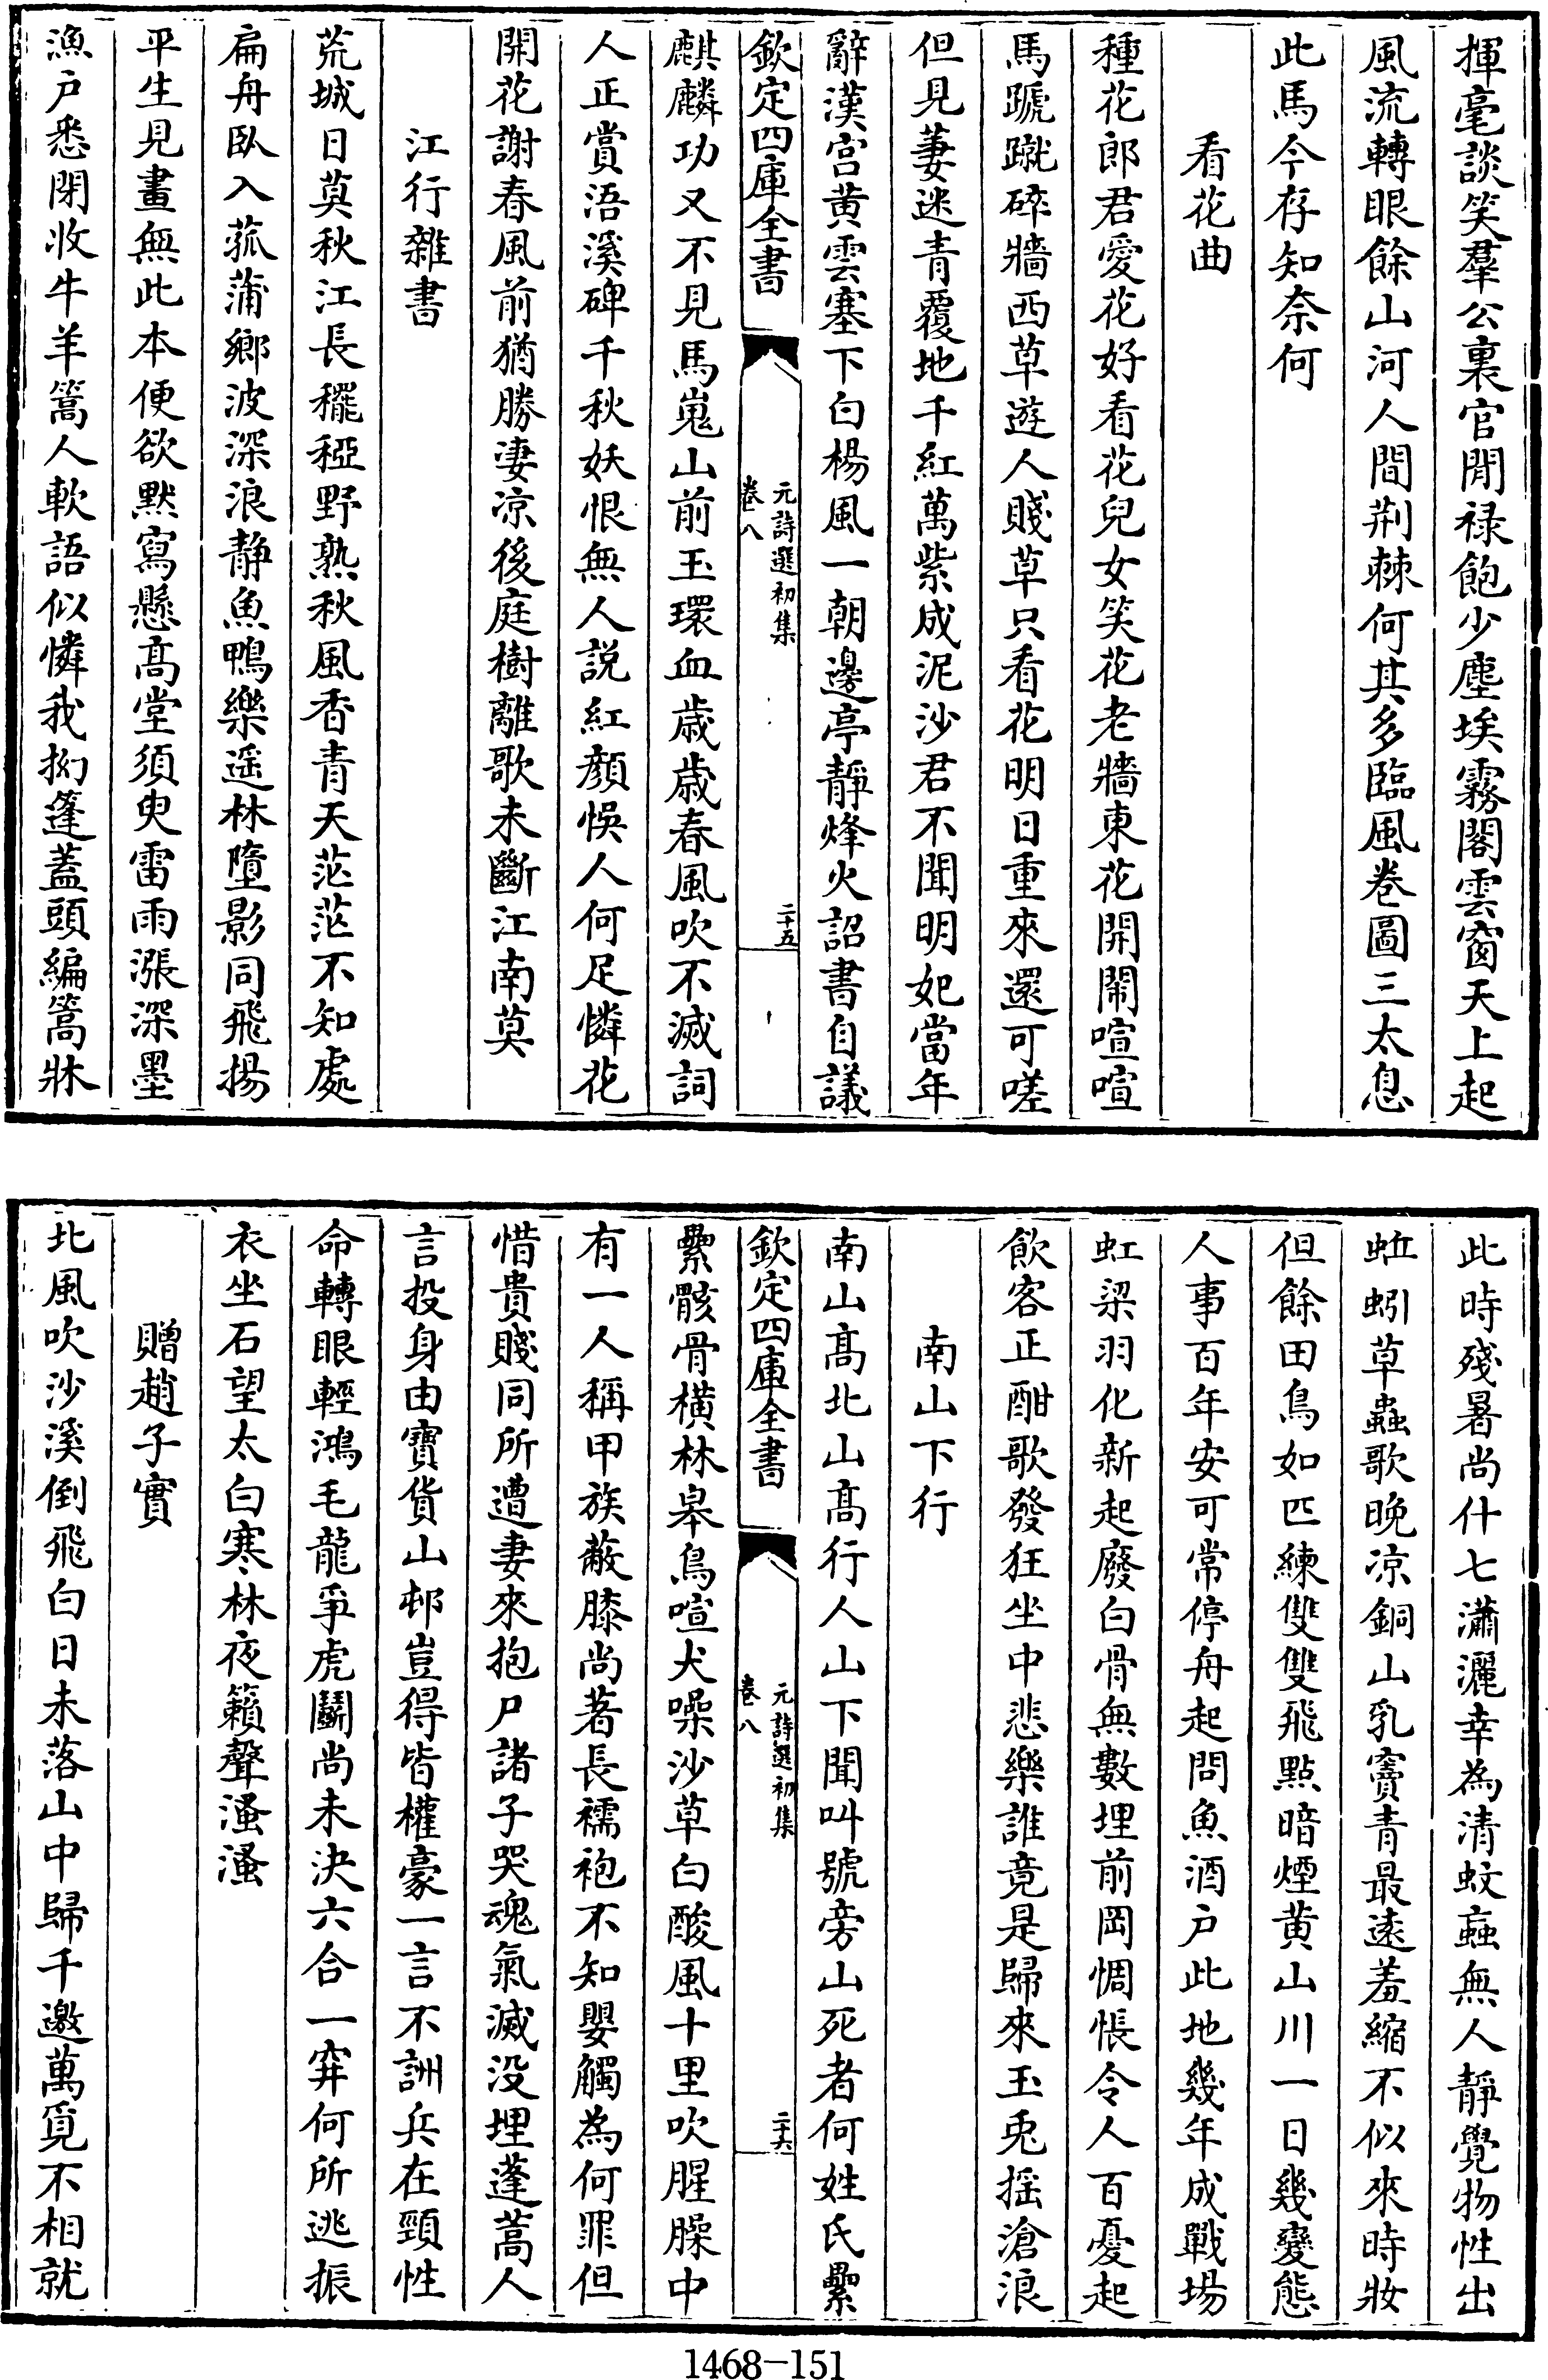 揮毫談笑羣公裏官閒禄飽少塵埃霧閣雲窗天上起
風流轉眼餘山河人間荆棘何其多臨風卷圖三太息
此馬今存知奈何
看花曲
種花郎君愛花好看花兒女笑花老牆東花開鬧喧喧
馬蹏蹴碎牆西草遊人賤草只看花明日重來還可嗟
但見萋迷青覆地千紅萬紫成泥沙君不聞明妃當年
辭漢宫黄雲塞下白楊風一朝邊亭靜烽火詔書自議
欽定四庫全書
元詩選初集
卷八
二十五
麒麟功又不見馬嵬山前玉環血歳歳春風吹不滅詞
人正賞浯溪碑千秋妖恨無人説紅顔悞人何足憐花
開花謝春風前猶勝凄凉後庭樹離歌未斷江南莫
江行雜書
荒城日莫秋江長䆉稏野熟秋風香青天茫茫不知處
扁舟臥入菰蒲鄉波深浪静魚鴨樂遥林墮影同飛揚
平生見畫無此本便欲默寫懸髙堂須臾雷雨漲深墨
漁户悉閉收牛羊篙人軟語似憐我拗篷蓋頭編篙牀
此時殘暑尚什七瀟灑幸為清蚊䖟無人靜覺物性出
蚯蚓草蟲歌晚凉銅山乳竇青最逺羞縮不似來時妝
但餘田鳥如匹練雙雙飛點暗煙黄山川一日幾變態
人事百年安可常停舟起問魚酒户此地幾年成戰場
虹梁羽化新起廢白骨無數埋前岡惆悵令人百憂起
飲客正酣歌發狂坐中悲樂誰竟是歸來玉兎揺滄浪
南山下行
南山髙北山髙行人山下聞叫號旁山死者何姓氏纍
欽定四庫全書
元詩選初集
卷八
二十六
纍骸骨横林皋鳥喧犬噪沙草白酸風十里吹腥臊中
有一人稱甲族蔽膝尚著長襦袍不知嬰觸為何罪但
惜貴賤同所遭妻來抱尸諸子哭魂氣滅没埋蓬蒿人
言投身由寳貨山邨豈得皆權豪一言不詶兵在頸性
命轉眼輕鴻毛龍爭虎鬭尚未決六合一穽何所逃振
衣坐石望太白寒林夜籟聲溞溞
贈趙子實
北風吹沙溪倒飛白日未落山中歸千邀萬覓不相就
1468-151